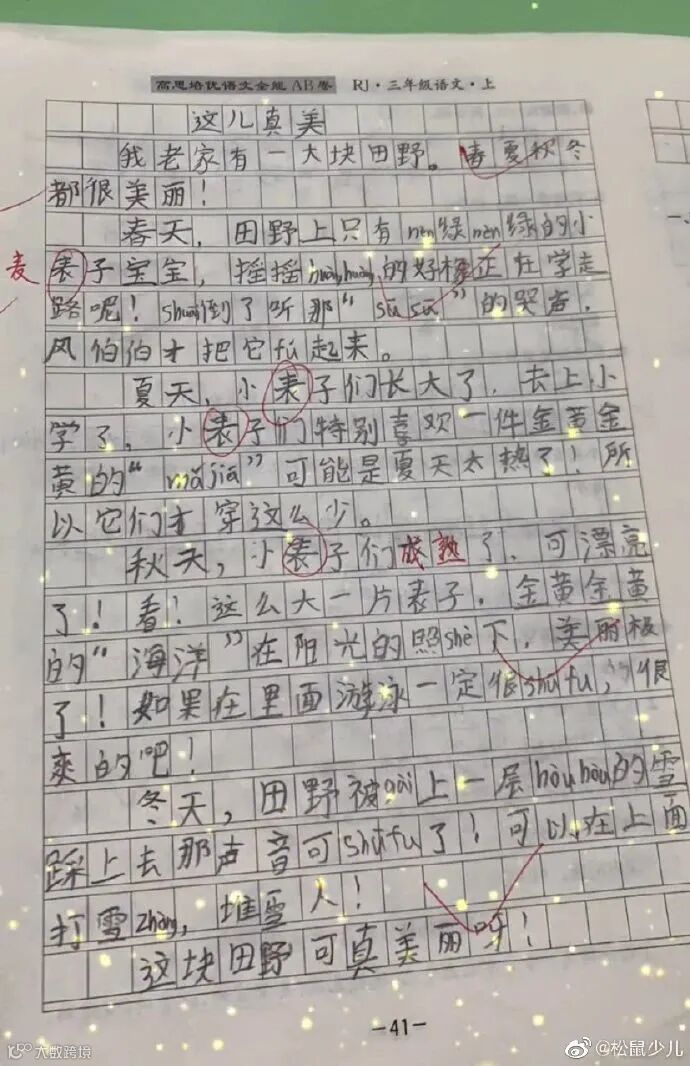 高思培优语文全能AB卷 RJ·三年级语文·上
这儿真美
我老家有一大块田野。春夏秋冬
都很美丽！
春天，田野上只有nèn绿nèn绿的小
麦
表子宝宝，摇摇huàng huàng的好像正在学走
路呢！shuāi倒了听那“sū sū”的哭声，
风伯伯才把它fú起来。
夏天，小表子们长大了，去上小
学了，小表子们特别喜欢一件金黄金
黄的“mǎ jiǎ”可能是夏天太热了！所
以它们才穿这么少。
秋天，小表子们成熟了，可漂亮
了！看！这么大一片表子，金黄金黄
的“海洋”在阳光的照shè下，美丽极
了！如果在里面游泳一定很shū fu，很
爽的吧！
冬天，田野被gài上一层hòu hòu的雪
踩上去那声音可shū fu了！可以在上面
打雪zhàng，堆雪人！
这块田野可真美丽呀！
-41-
大数跨境
@松鼠少儿